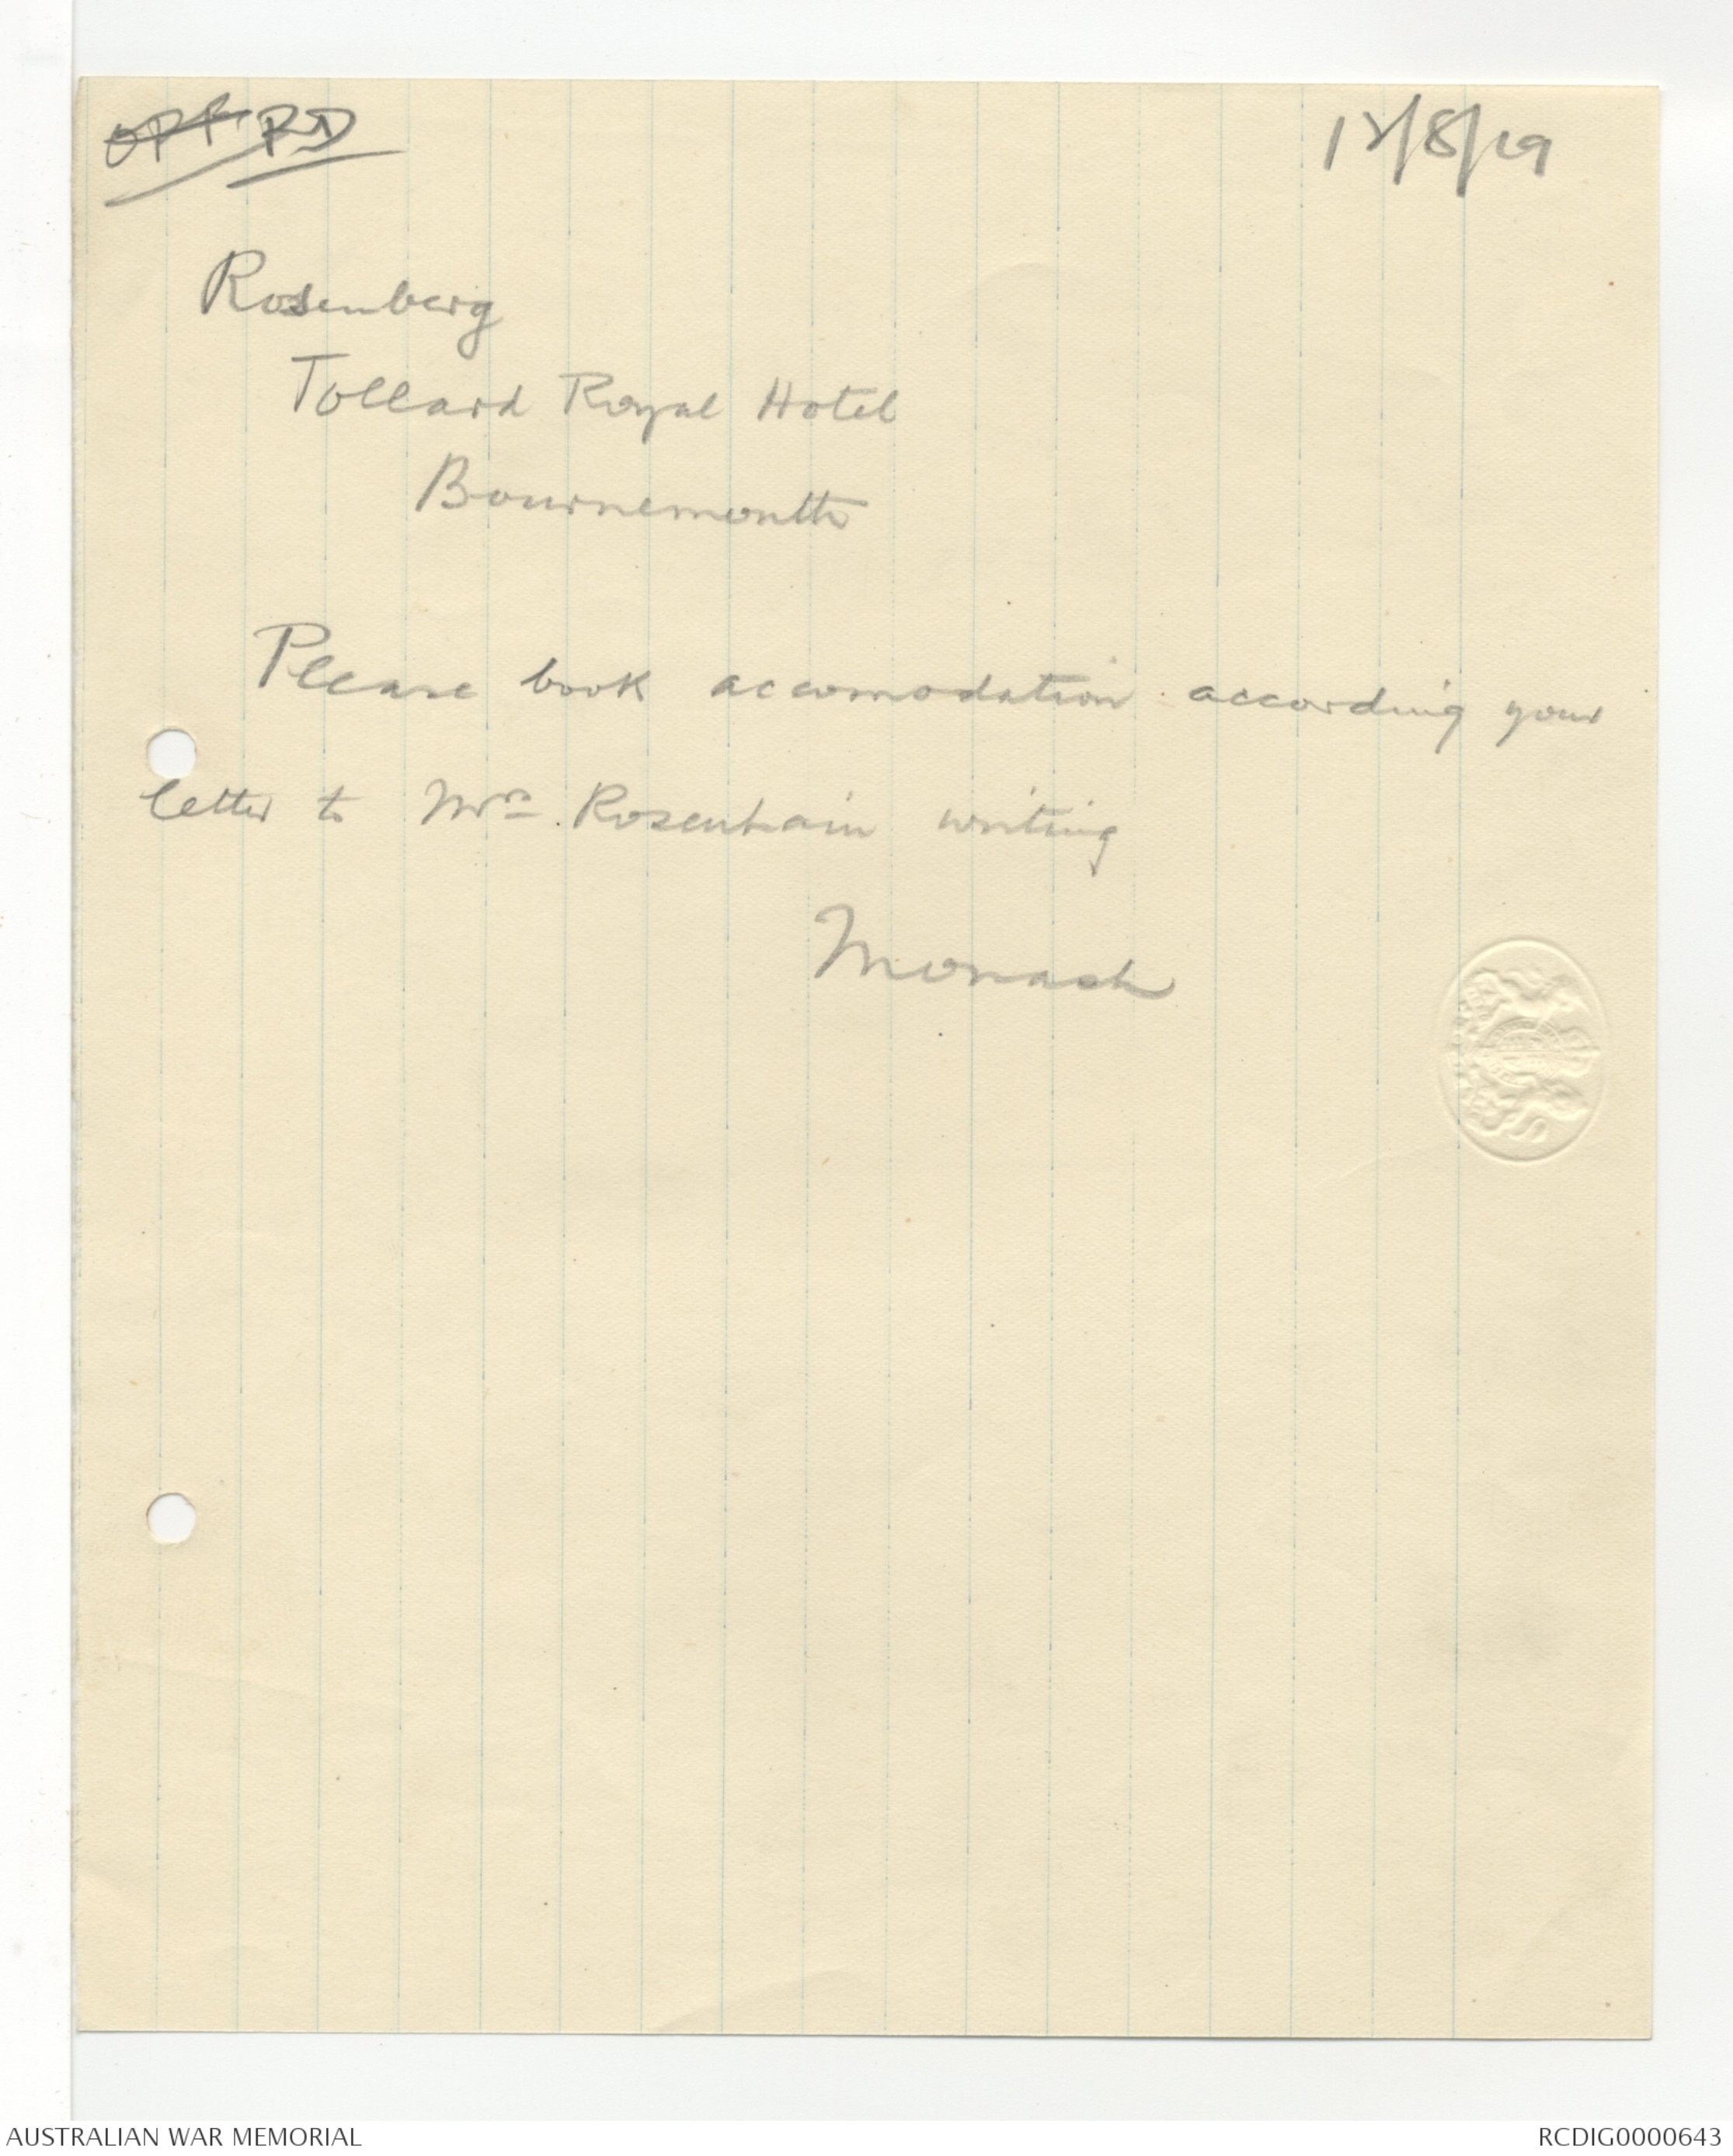 OPP. PD
12/8/19
Rosenberg
Tollard Royal Hotel
Bournemouth
Please book accomodation according your
letter to Mrs. Rosenhain writing
Monash
AUSTRALIAN WAR MEMORIAL
RCDIG0000643